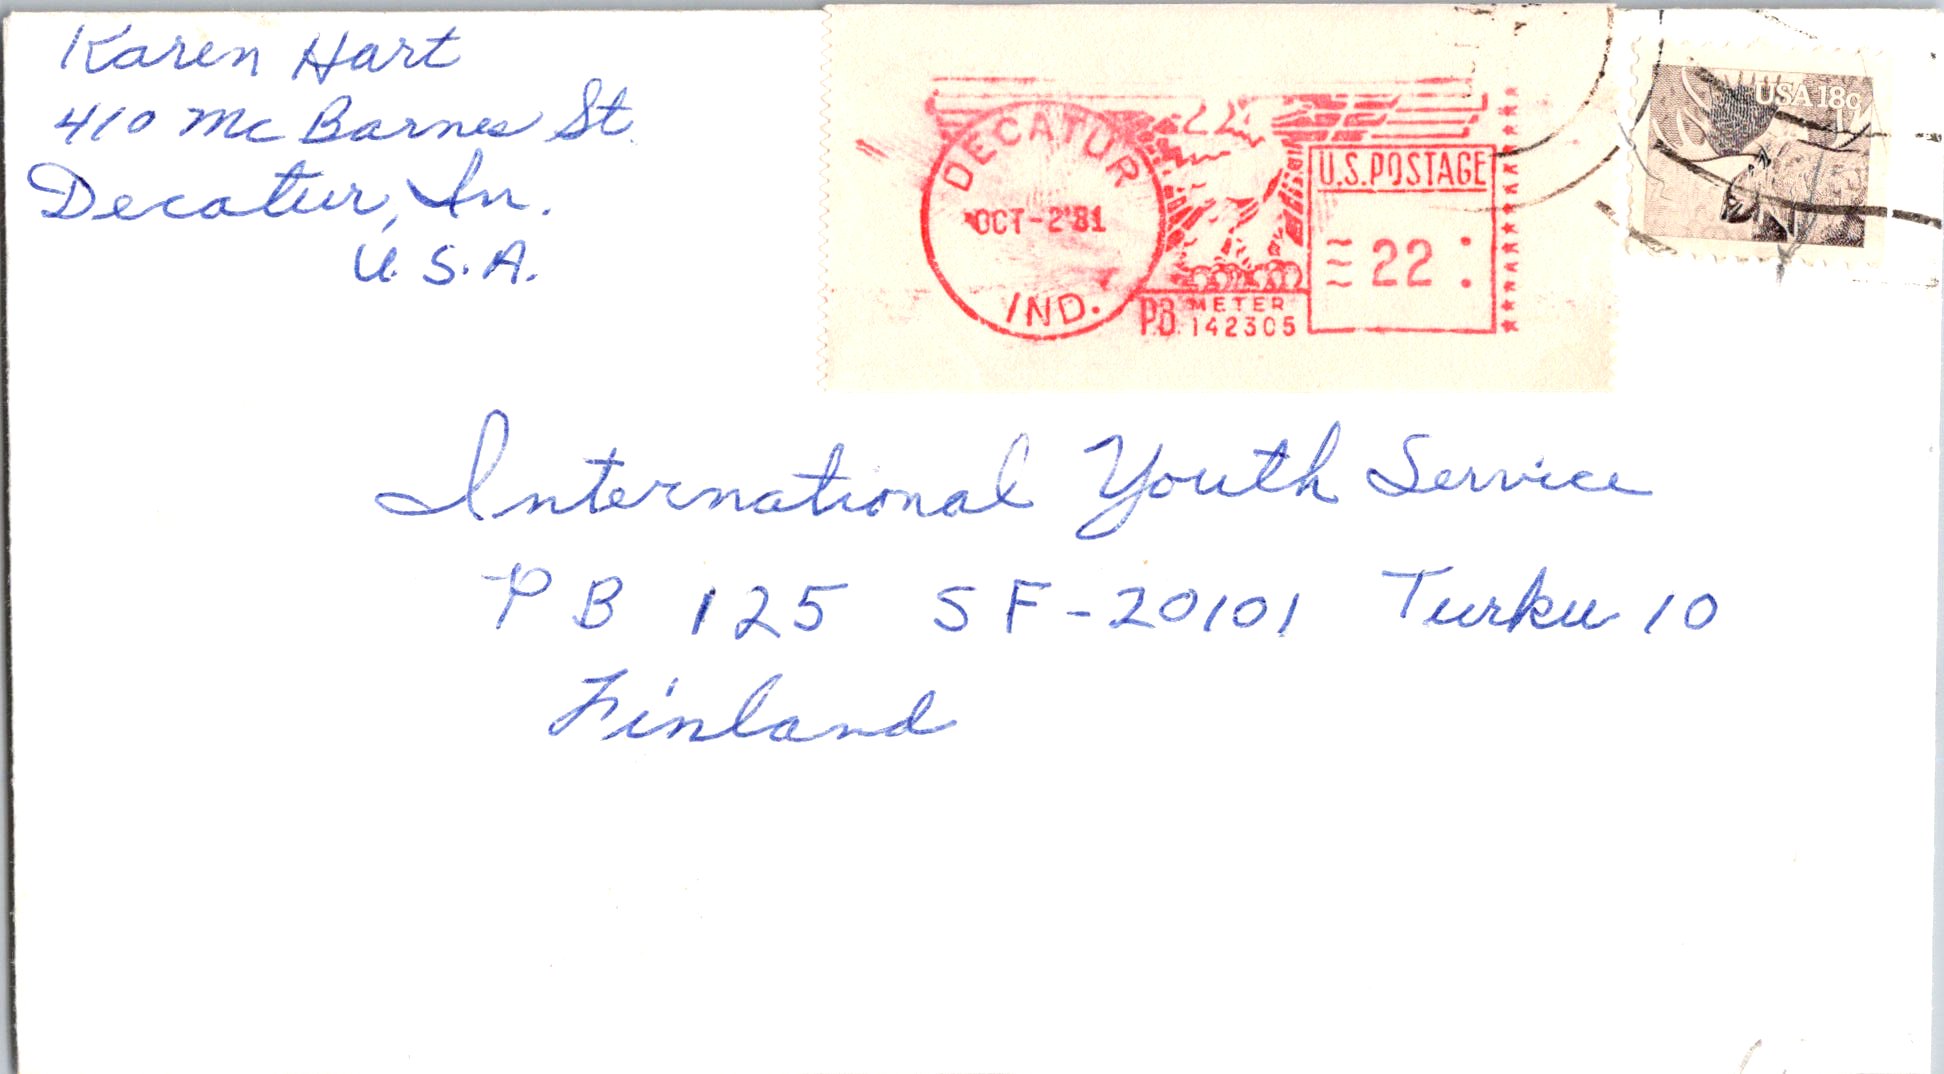 Karen Hart
410 Mc Barnes St.
Decatur, In.
U.S.A.
DECATUR
OCT-2'81
IND.
P.B. METER
142305
U.S. POSTAGE
22
USA 18c
International Youth Service
PB 125 SF-20101 Turku 10
Finland